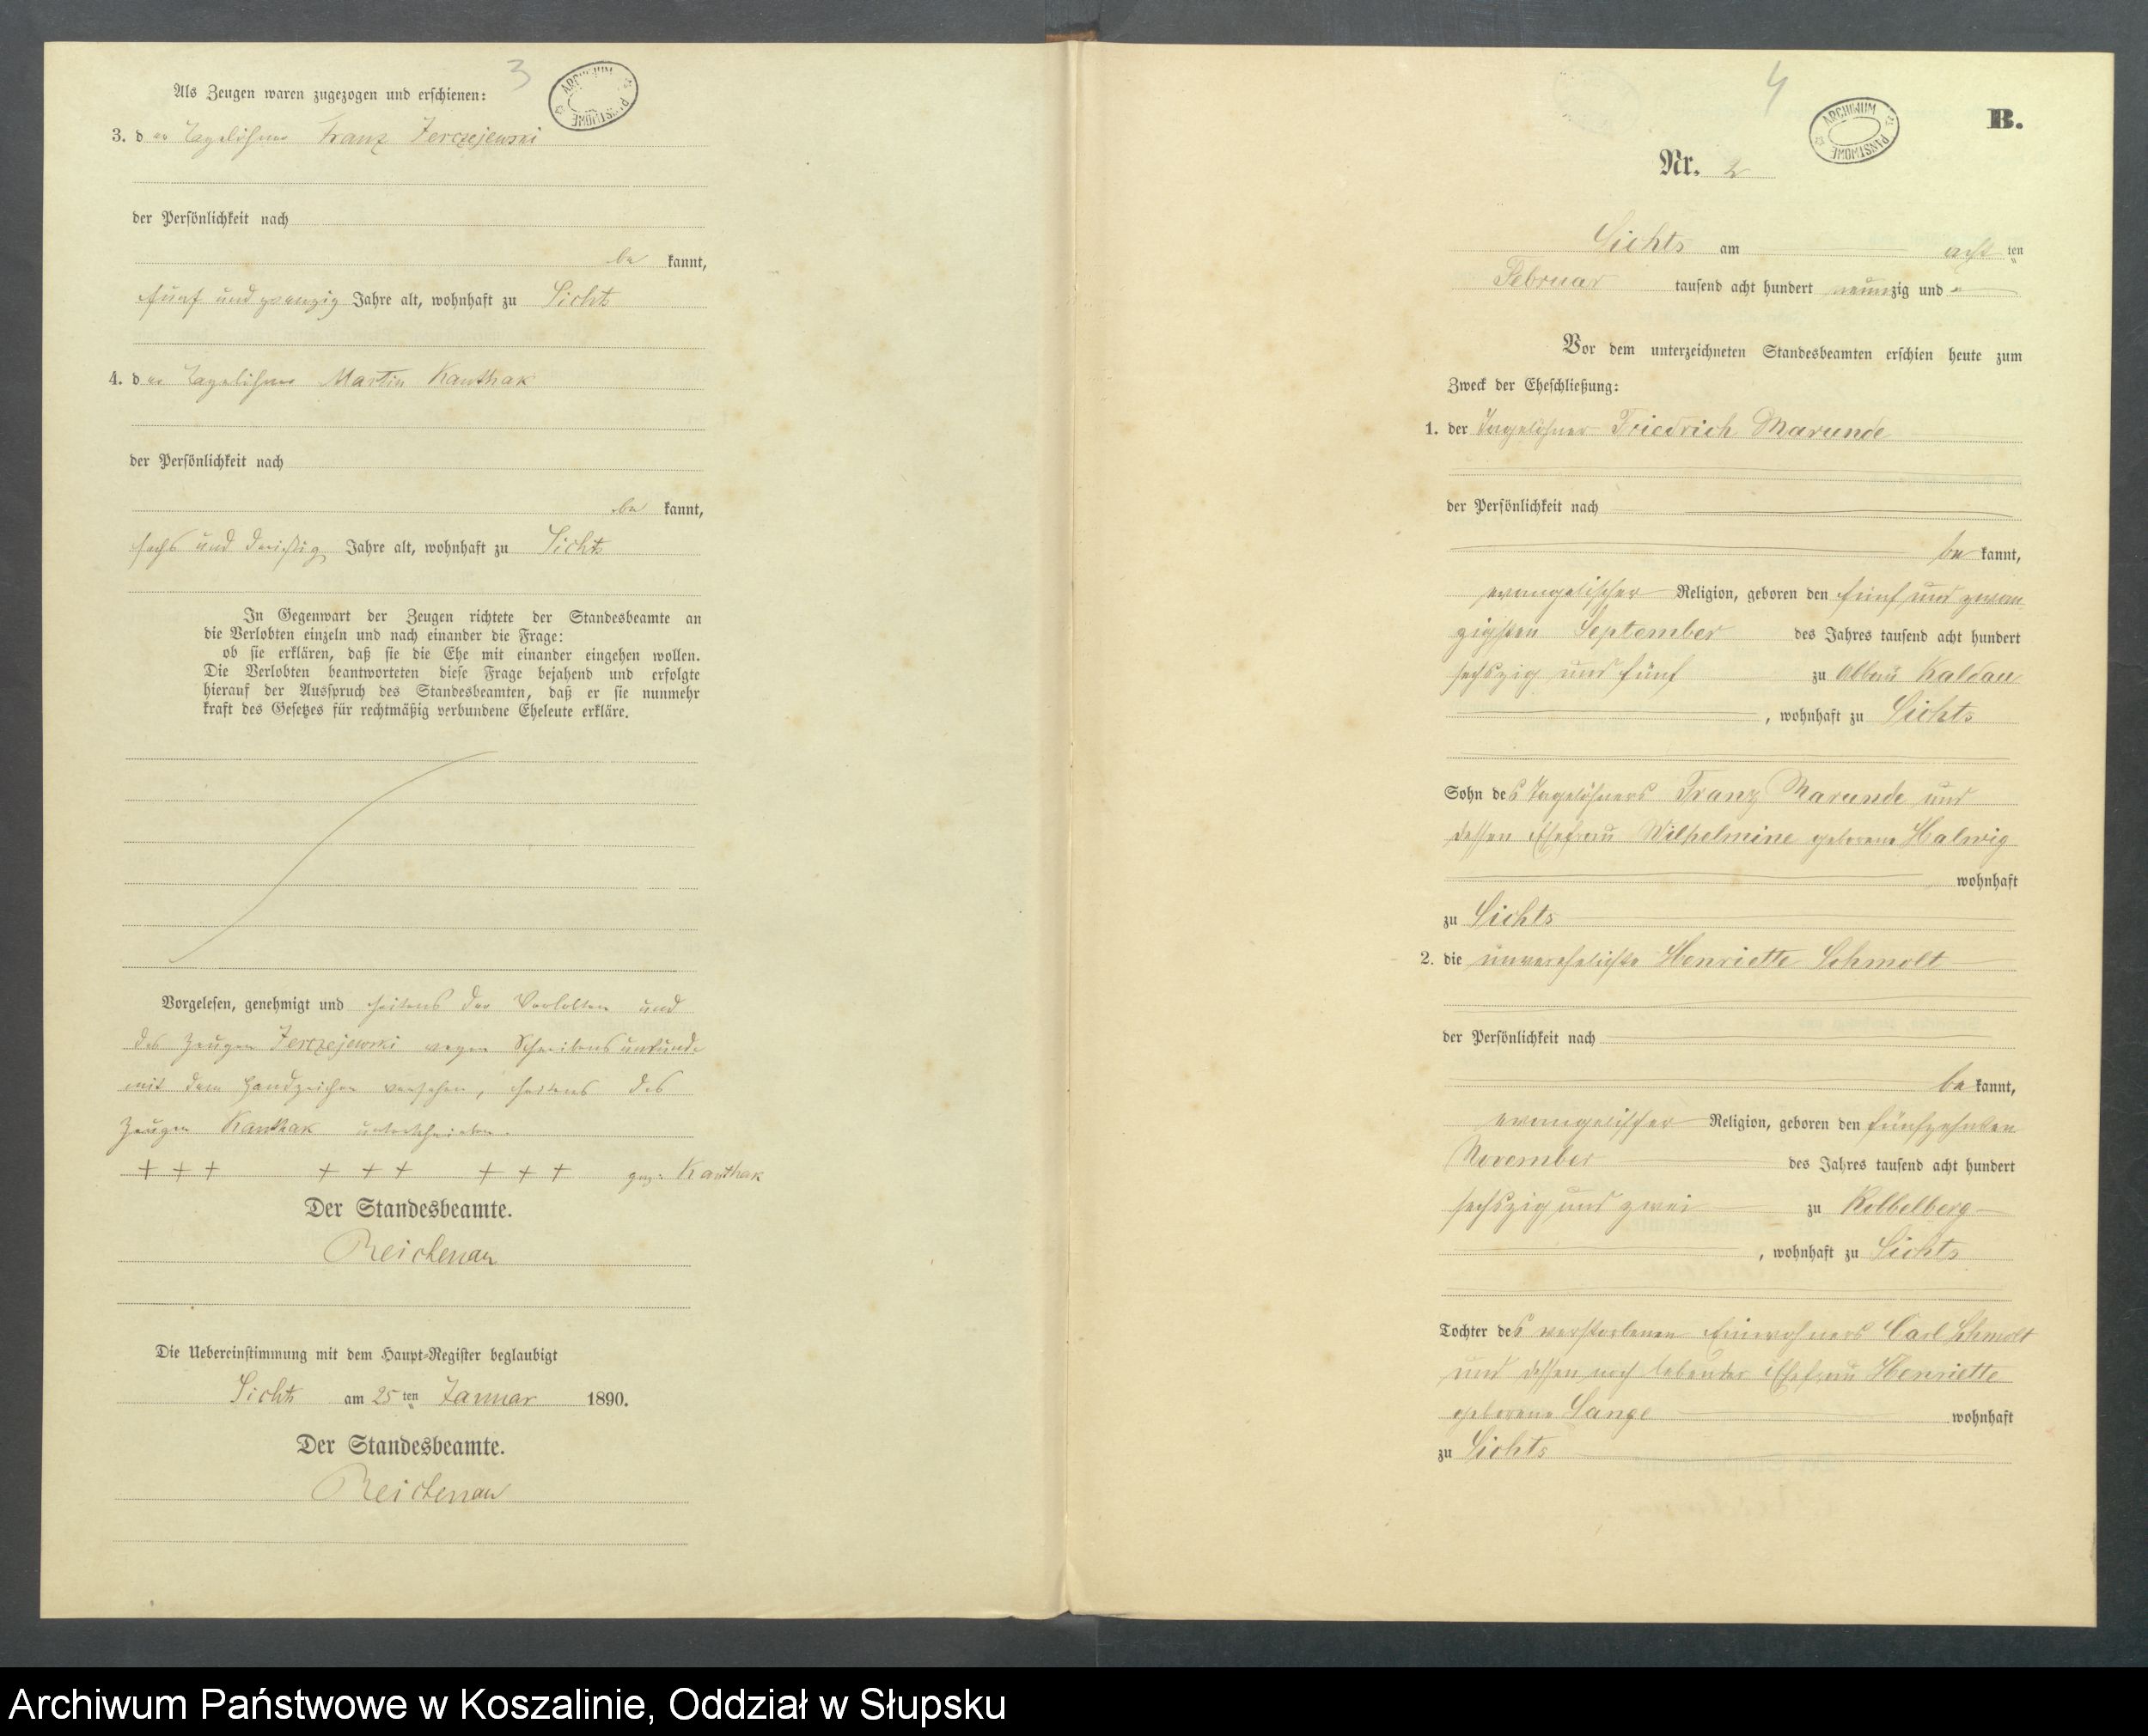 3
ARCHIWUM PAŃSTWOWE
Als Zeugen waren zugezogen und erschienen:
3. der Tagelöhner Franz Jerczejewski
der Persönlichkeit nach
be kannt,
fünf und zwanzig Jahre alt, wohnhaft zu Sichts
4. der Tagelöhner Martin Kanthak
der Persönlichkeit nach
be kannt,
sechs und dreißig Jahre alt, wohnhaft zu Sichts
In Gegenwart der Zeugen richtete der Standesbeamte an
die Verlobten einzeln und nach einander die Frage:
ob sie erklären, daß sie die Ehe mit einander eingehen wollen.
Die Verlobten beantworteten diese Frage bejahend und erfolgte
hierauf der Ausspruch des Standesbeamten, daß er sie nunmehr
kraft des Gesetzes für rechtmäßig verbundene Eheleute erkläre.
Vorgelesen, genehmigt und seitens der Verlobten und
des Zeugen Jerczejewski wegen Schreibensunkunde
mit dem Handzeichen versehen, seitens des
Zeugen Kanthak unterschrieben.
+ + + + + + + + + gez: Kanthak
Der Standesbeamte.
Reichenau
Die Uebereinstimmung mit dem Haupt-Register beglaubigt
Sichts am 25 ten Januar 1890.
Der Standesbeamte.
Reichenau
4
ARCHIWUM PAŃSTWOWE
B.
Nr. 2
Sichts am acht ten
Februar tausend acht hundert neunzig und
Vor dem unterzeichneten Standesbeamten erschien heute zum
Zweck der Eheschließung:
1. der Tagelöhner Friedrich Marunde
der Persönlichkeit nach
be kannt,
evangelischer Religion, geboren den fünf und zwan
zigsten September des Jahres tausend acht hundert
sechszig und fünf zu Abbau Kaldau
, wohnhaft zu Sichts
Sohn des Tagelöhners Franz Marunde und
dessen Ehefrau Wilhelmine geborene Halwig
wohnhaft
zu Sichts
2. die unverehelichte Henriette Schmolt
der Persönlichkeit nach
be kannt,
evangelischer Religion, geboren den fünfzehnten
November des Jahres tausend acht hundert
sechszig und zwei zu Kobbelberg
, wohnhaft zu Sichts
Tochter des verstorbenen Einwohners Carl Schmolt
und dessen noch lebender Ehefrau Henriette
geborene Lange wohnhaft
zu Sichts
Archiwum Państwowe w Koszalinie, Oddział w Słupsku